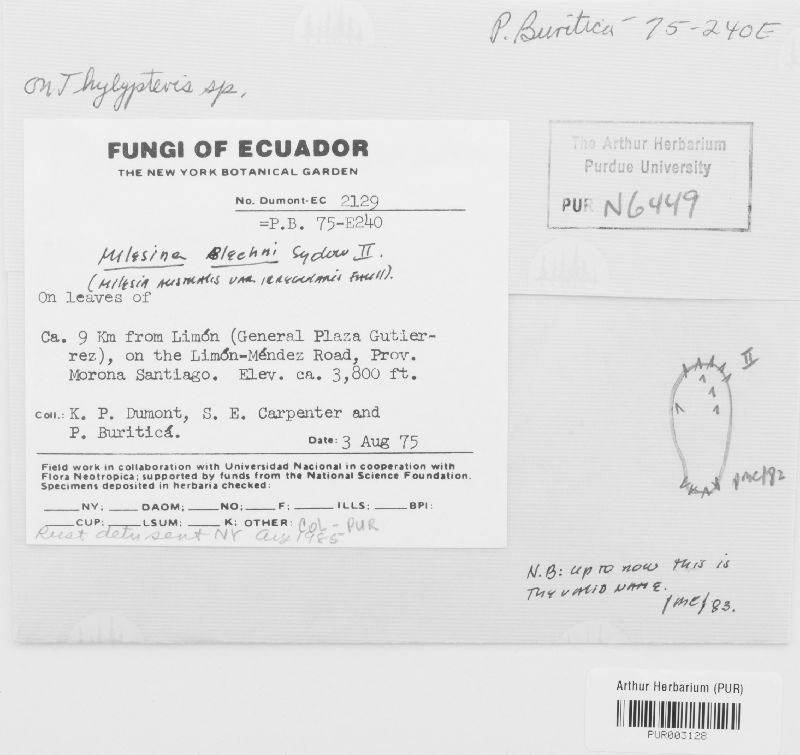 P. Buriticá 75-240E
on Thylypteris sp.
FUNGI OF ECUADOR
THE NEW YORK BOTANICAL GARDEN
No. Dumont-EC 2129
=P.B. 75-E240
Milesina Blechni Sydow II.
(Milesia australis var. irregularis Faull).
On leaves of
Ca. 9 Km from Limón (General Plaza Gutier-
rez), on the Limón-Méndez Road, Prov.
Morona Santiago. Elev. ca. 3,800 ft.
Coll.: K. P. Dumont, S. E. Carpenter and
P. Buriticá.
Date: 3 Aug 75
Field work in collaboration with Universidad Nacional in cooperation with
Flora Neotropica; supported by funds from the National Science Foundation.
Specimens deposited in herbaria checked:
____NY; ____DAOM; ____NO; ____F; ____ILLS; ____BPI:
____CUP; ____LSUM; ____K; OTHER: COL - PUR
Rust detn sent NY Aug 1985
The Arthur Herbarium
Purdue University
PUR N6449
II
pmc/82
N.B: up to now this is
the valid name.
pmc/83.
Arthur Herbarium (PUR)
PUR003128